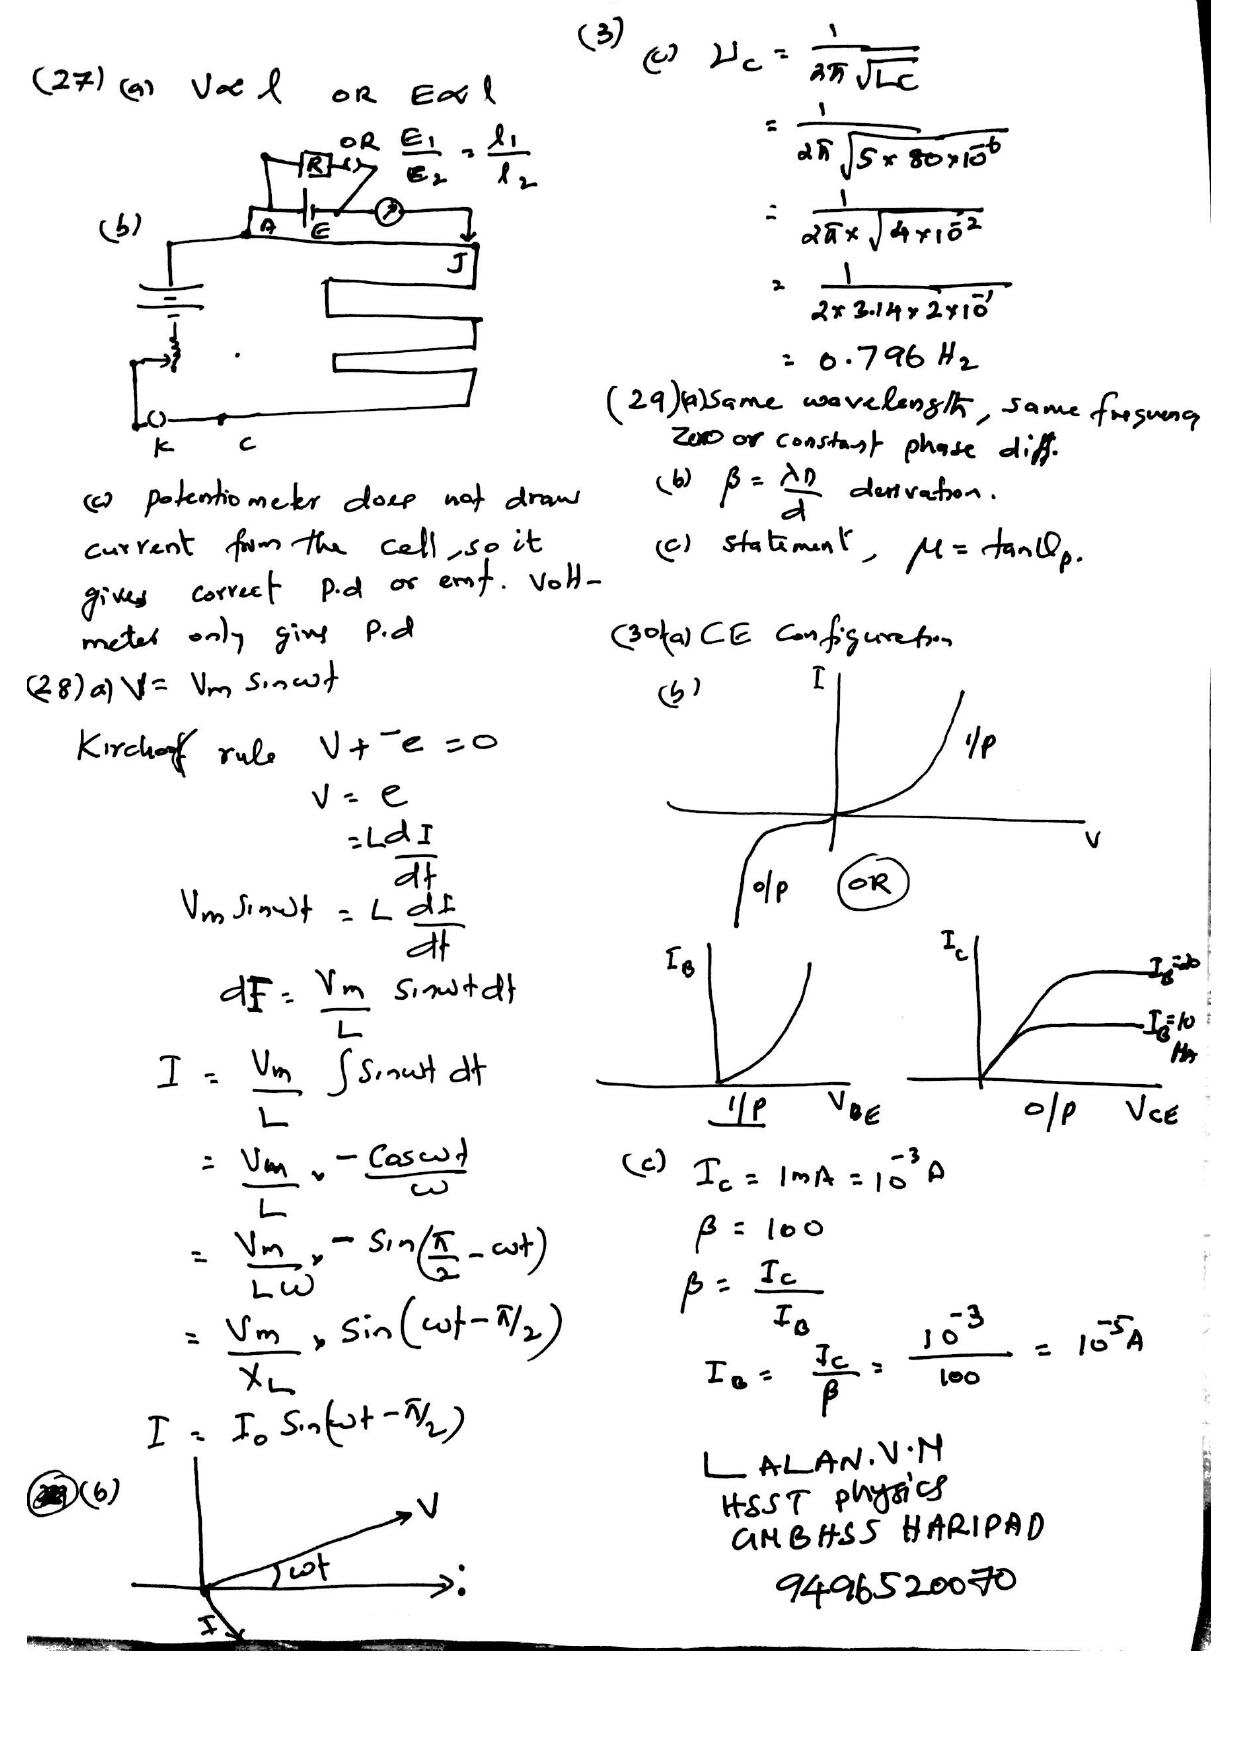 (27) (a) V∝ l OR E∝ l
OR E1/E2 = l1/l2
(b)
R
A E
J
K C
(c) potentiometer does not draw
current from the cell, so it
gives correct p.d or emf. Volt-
meter only give P.d
(28) a) V = Vm Sinωt
Kirchoff rule V + -e = 0
V = e
= L dI/dt
Vm Sinωt = L dI/dt
dI = Vm/L Sinωt dt
I = Vm/L ∫ Sinωt dt
= Vm/L x - Cosωt/ω
= Vm/Lω x - Sin(π/2 - ωt)
= Vm/XL x Sin(ωt - π/2)
I = I0 Sin(ωt - π/2)
(b)
V
ωt
I
(3)
(c) νc = 1/2π√LC
= 1/2π√5 x 80 x 10^-6
= 1/2π x √4 x 10^-2
= 1/2 x 3.14 x 2 x 10^-1
= 0.796 Hz
(29) (a) Same wavelength, same frequency
Zero or constant phase diff.
(b) β = λD/d derivation.
(c) statement, μ = tanθp.
(30) (a) CE Configuration
(b)
I
I/P
V
O/P
OR
IB
I/P VBE
IC
IB=20
IB=10
μA
O/P VCE
(c) IC = 1mA = 10^-3 A
β = 100
β = IC/IB
IB = IC/β = 10^-3/100 = 10^-5 A
LALAN.V.M
HSST physics
GMBHSS HARIPAD
9496520070